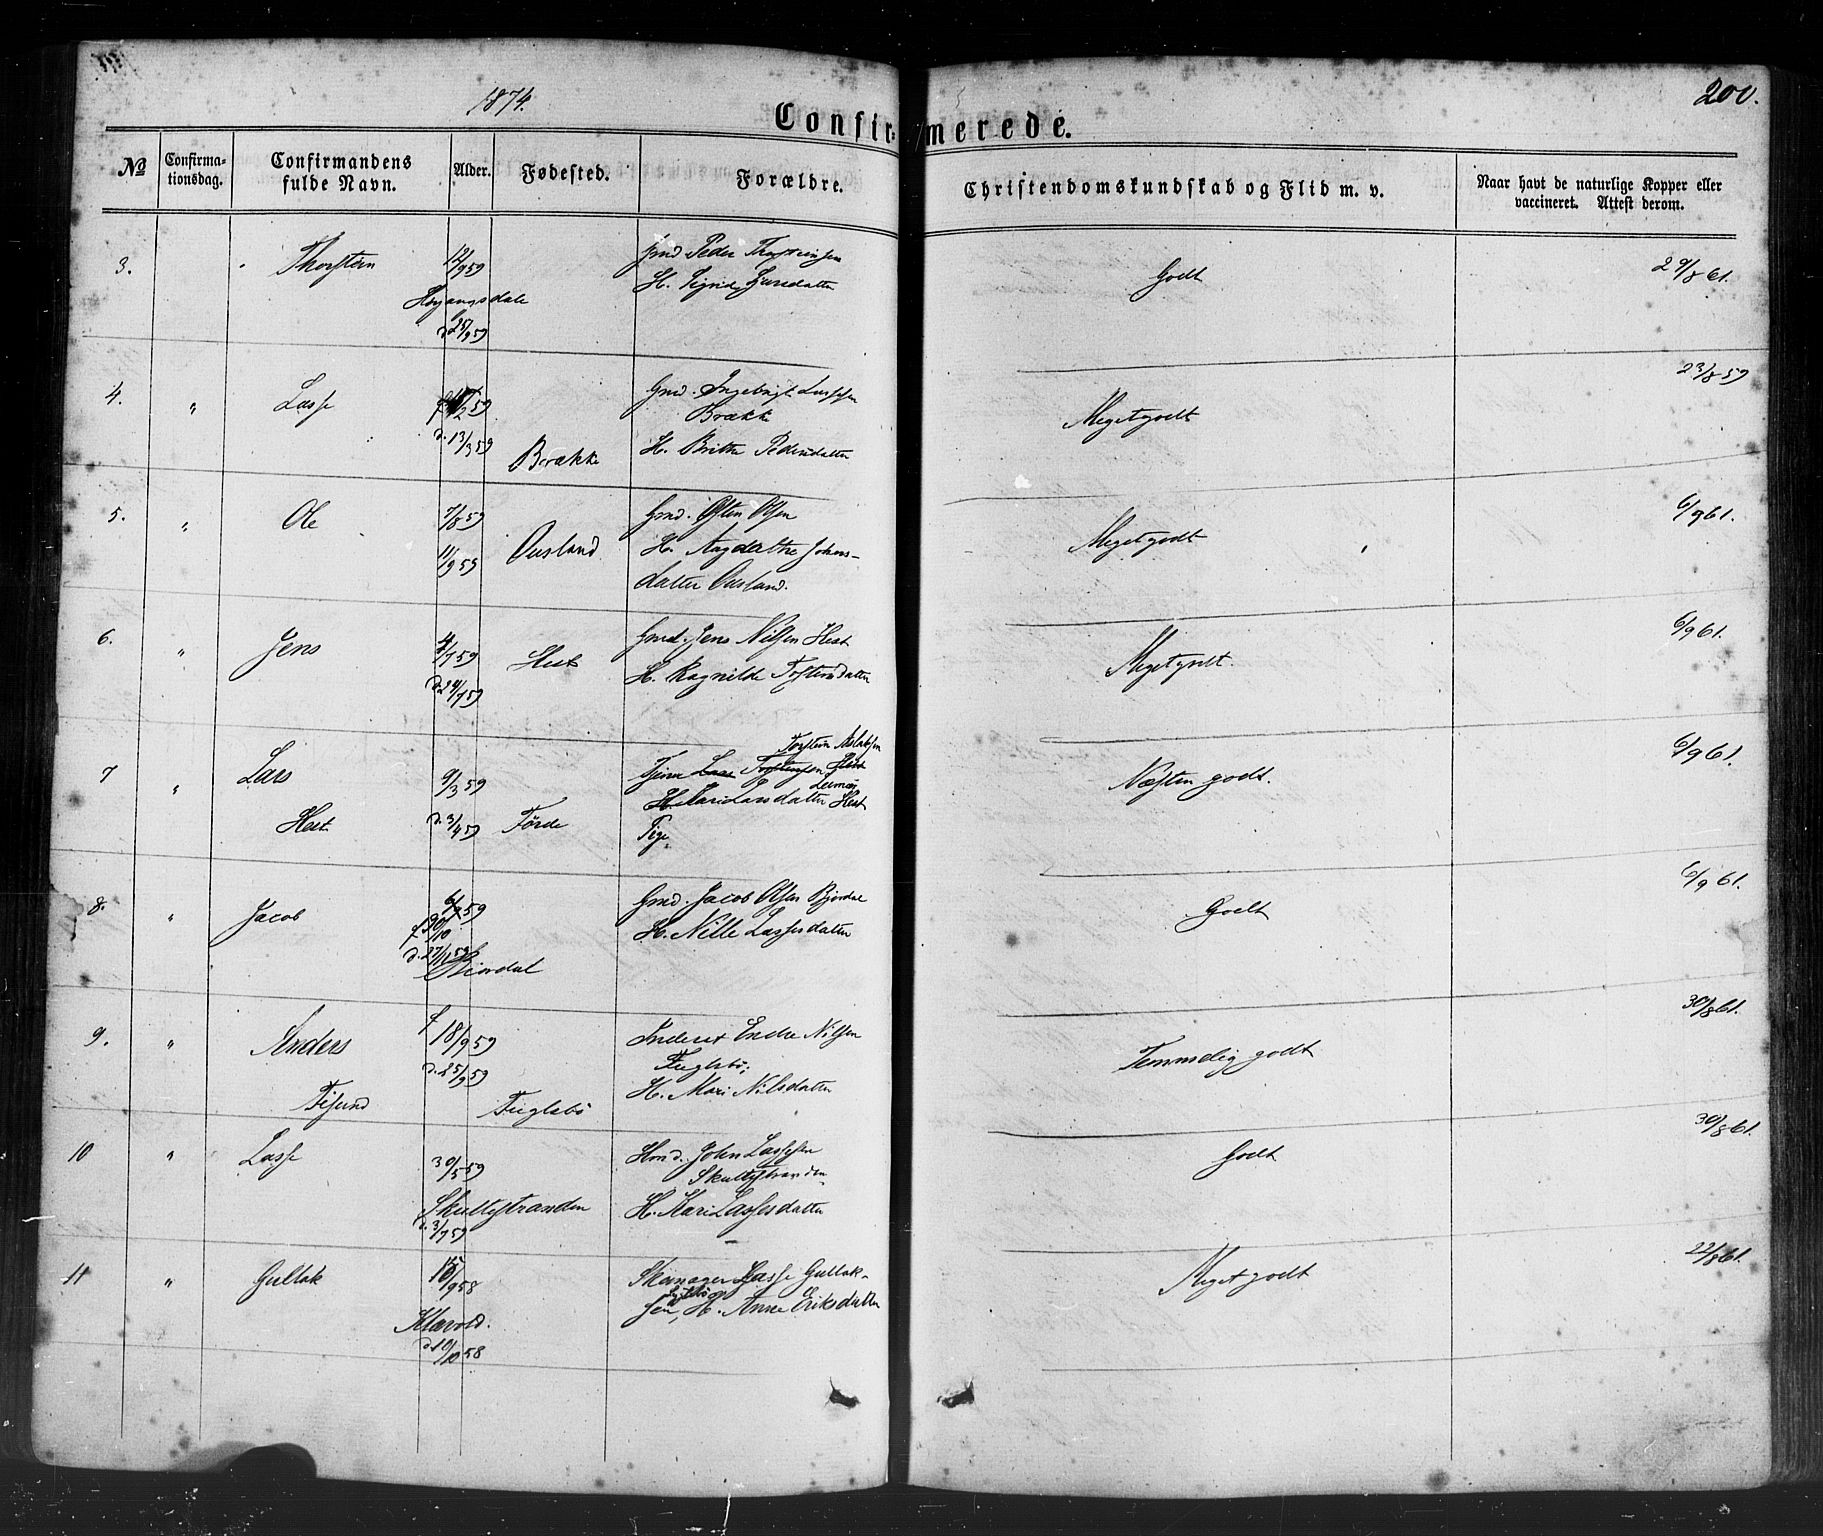 1874.
200.
Confirmerede.
No
Confirma-
tionsdag.
Confirmandens
fulde Navn.
Alder.
Fødested.
Forældre.
Christendomskundskab og Flid m. v.
Naar havt de naturlige Kopper eller
vaccineret. Attest derom.
3.
Thorstein
12/9 59
d. 25/9 59
Gmd Peder Thorsteinsen
H. Sigrid
Godt
29/8 61.
4.
"
Lasse
d. 13/3 59
Brække
Gmd. Ingebrigt Lassesen
Brække
H. Britha Pedersdatter
Megetgodt
23/8 59
5.
"
Ole
7/8 59
11/9 59
Ousland
Gmd. Østen Olsen
H. Johans-
datter Ousland.
Megetgodt
6/9 61.
6.
"
Jens
4/7 59
d. 24/7 59
Hest
Gmd. Jens Nilsen Hest
H. Ragnilde Tostensdatter
Megetgodt.
6/9 61.
7
"
Lars
Hest
9/3 59
d. 3/4 59
Førde
Torstein Aslaksen
Tjener Lars Tostensen Hest
H. Kari Larsdatter Hest
Pige.
Næsten godt.
6/9 61.
8.
"
Jacob
d. 27/11 59
Gmd. Jacob Olsen Bjordal
H. Nille Lassesdatter
Godt
6/9 61.
9.
"
Anders
f 18/9 59
d. 25/9 59
Fuglebø
Inderst Endre Nilsen
Fuglebø;
H. Mari Nilsdatter
Temmelig godt
30/8 61.
10
"
Lasse
30/5 59
Skultestranden
d. 3/7 59
Hmd. John Lassesen
Skultestranden
H. Kari Lassesdatter
Godt
30/8 61.
11
"
Gullak
Klævold.
d. 10/10 58
Lasse Gullak-
sen, H. Anne Eriksdatter
Meget godt
22/8 61.